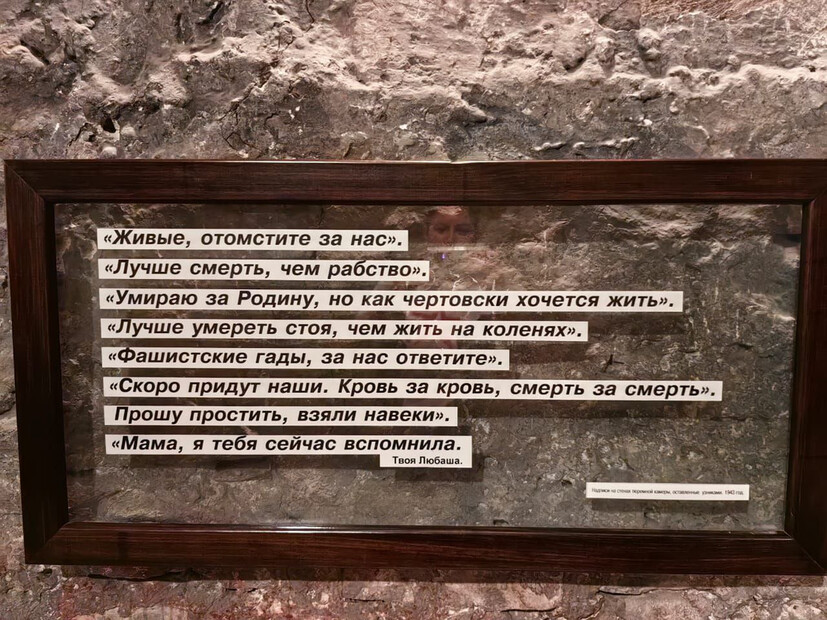 «Живые, отомстите за нас».
«Лучше смерть, чем рабство».
«Умираю за Родину, но как чертовски хочется жить».
«Лучше умереть стоя, чем жить на коленях».
«Фашистские гады, за нас ответите».
«Скоро придут наши. Кровь за кровь, смерть за смерть».
Прошу простить, взяли навеки».
«Мама, я тебя сейчас вспомнила.
Твоя Любаша.
Надписи на стенах тюремной камеры, оставленные узниками. 1943 год.